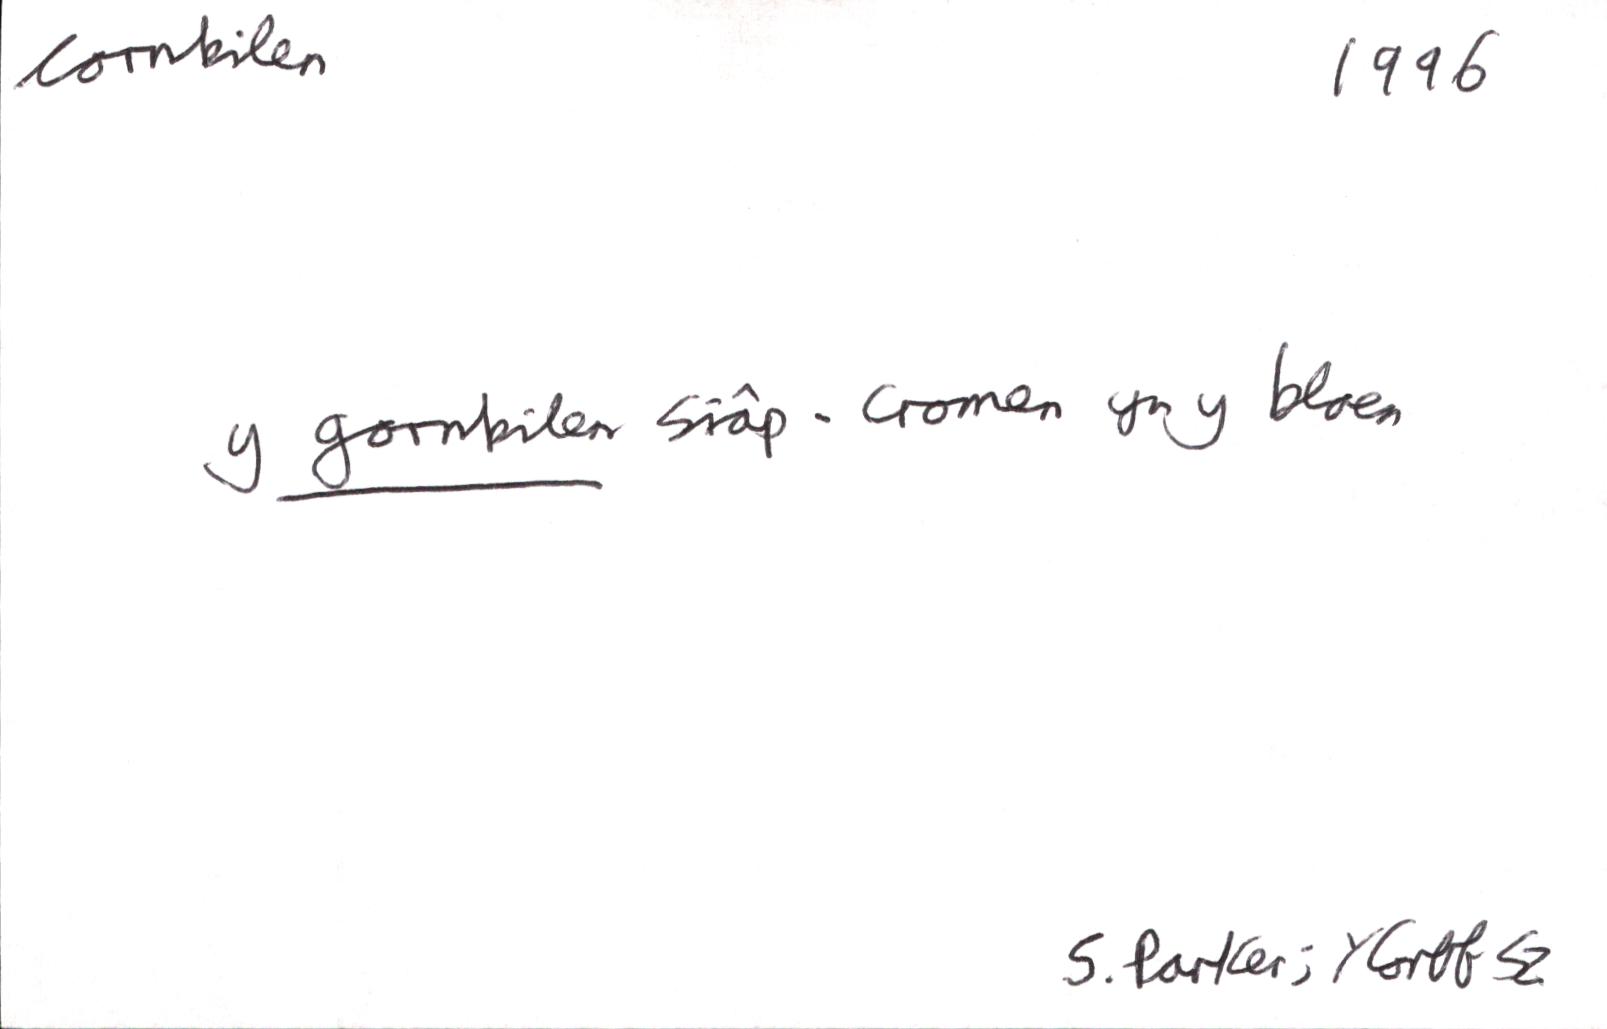 cornbilen 1996
y gornbilen siâp - cromen yn y blaen
S. Parker; Y Corff 52